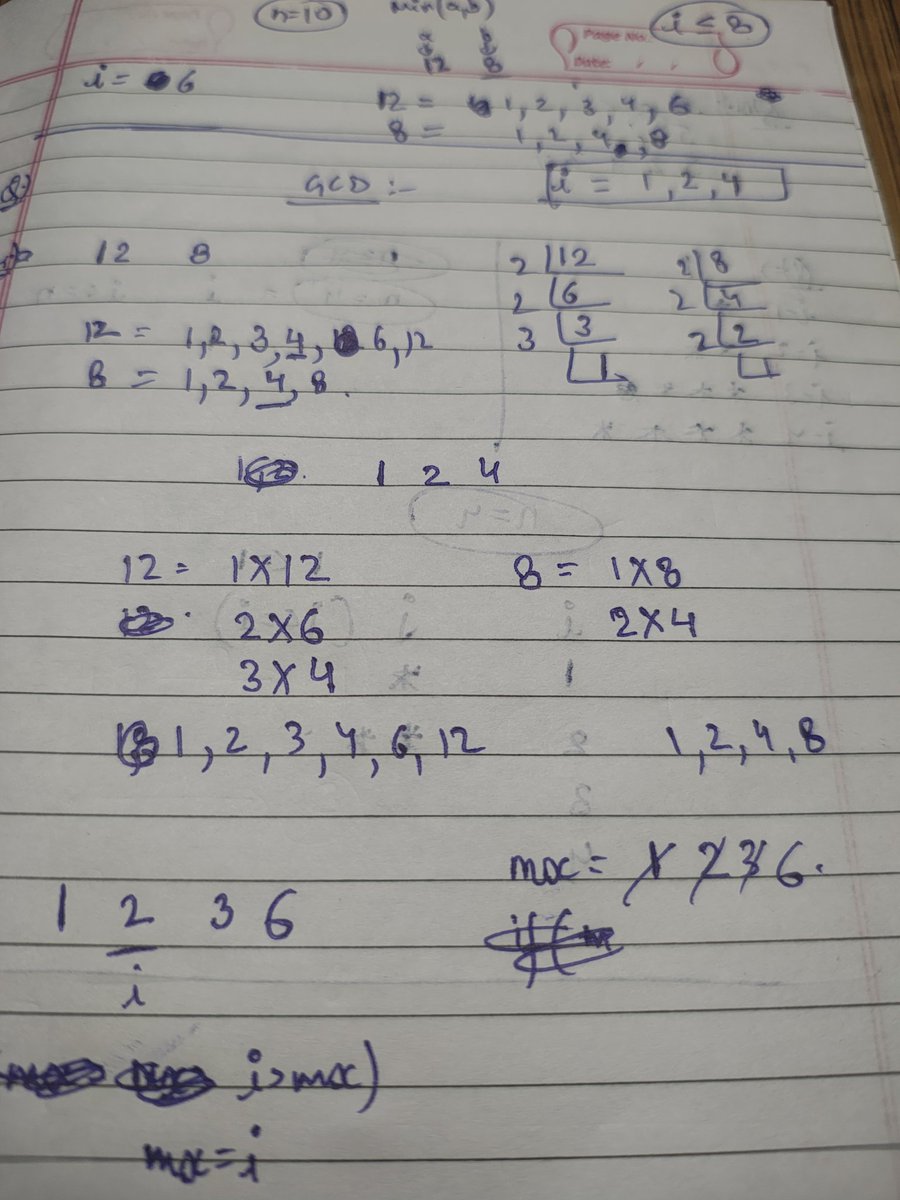 n=10 min(a,b) i ≤ 8
a b
Page No.
12 8 Date: , ,
i = 6
12 = 1, 2, 3, 4, 6
8 = 1, 2, 4, 8
Q) GCD :- i = 1, 2, 4
12 8
2 12 2 8
2 6 2 4
3 3 2 2
1 1
12 = 1, 2, 3, 4, 6, 12
8 = 1, 2, 4, 8.
1 2 4
12 = 1X12 8 = 1X8
2X6 2X4
3X4
1, 2, 3, 4, 6, 12 1, 2, 4, 8
mx = 1 2 3 6.
1 2 3 6
i
i>mx)
mx=i